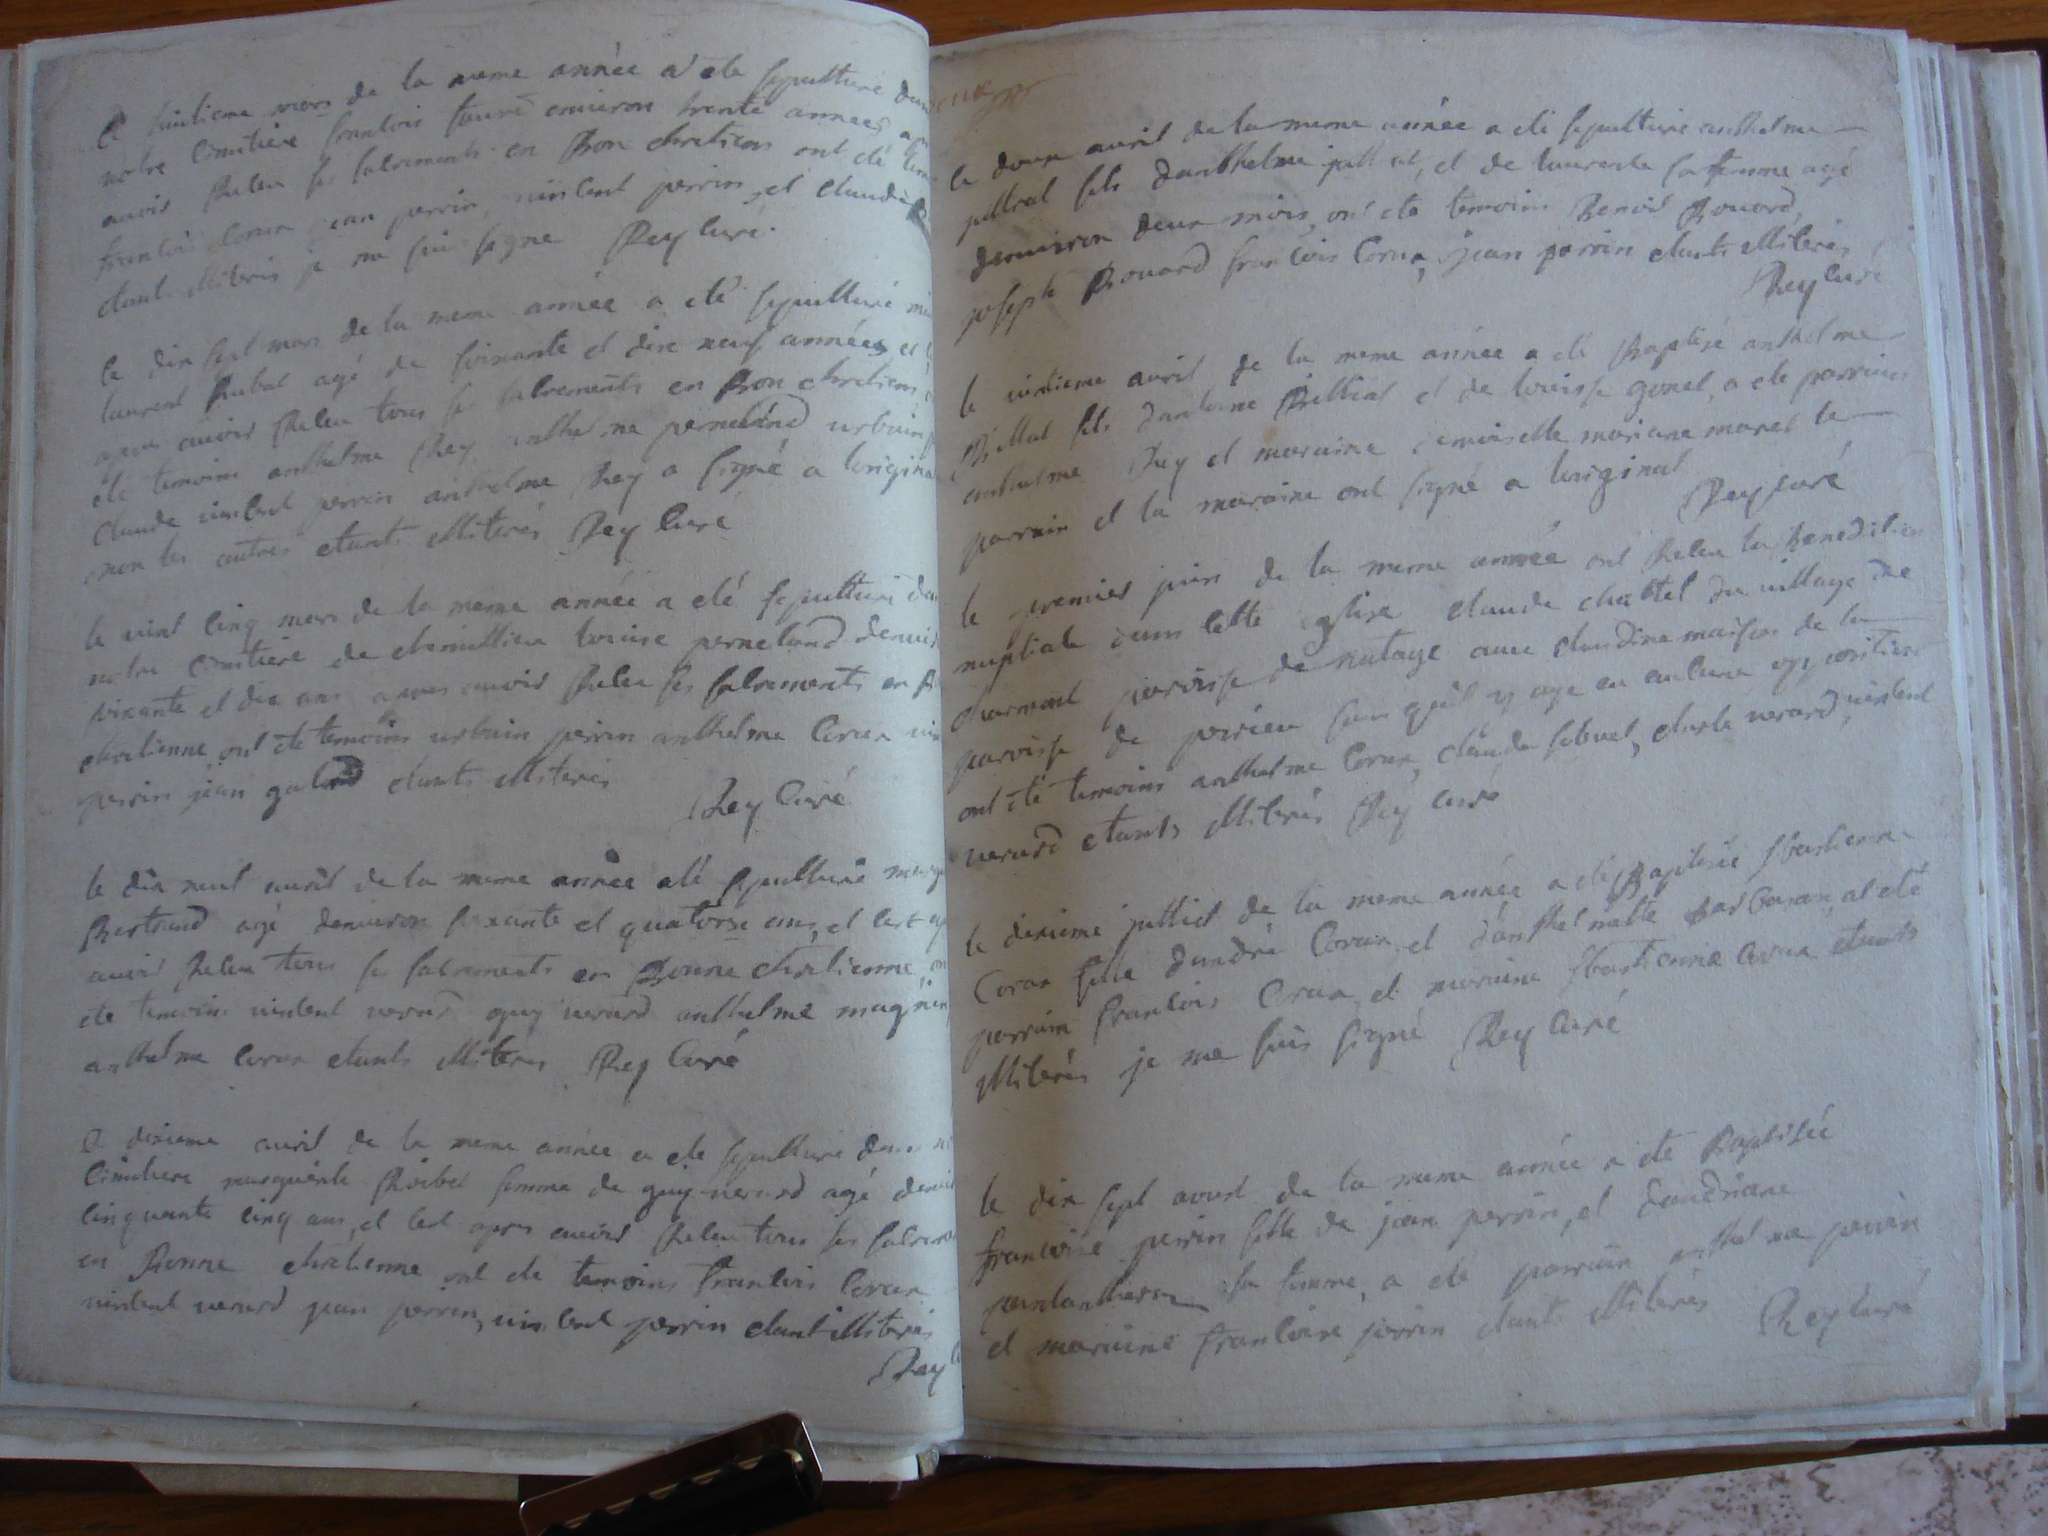 mars de la meme année a ete sepulturé dans
notre cimitiere francois environ trente années
avoir Receu ses sacrements en Bon chretiens ont eté
francois Corun jean perrin, vincent perrin, et claude
etants illiterés je me suis signé Rey Curé
le dix sept mars de la meme année a eté sepulturé
laurent agé de soixante et dix neuf années et
apres avoir Receu tous ses sacrements en Bon chretiens
eté temoins anthelme Rey anthelme perneland urbain
claude vincent perrin anthelme Rey a signé a loriginal
non les autres etants illiterés Rey Curé
le vint cinq mars de la meme année a eté sepulturé dans
notre cimitiere de louise perneland denviron
soixante et dix ans apres avoir Receu ses sacrements en
chretienne, ont ete temoins urbain perrin anthelme Corun
perrin jean etants illiterés
Rey Curé
le dix neuf avril de la meme année a eté sepulturé
Bertrand agé denviron soixante et quatorse ans, et cest
avoir Receu tous ses sacrements en Bonne chretienne
ete temoins vincent verard guy verard anthelme magnin
anthelme Corun etants illiterés Rey Curé
dixieme avril de la meme année a ete sepulturé dans
cimitiere marguerite femme de guy verard agé
cinquante cinq ans, et cest apres avoir Receu tous ses
en Bonne chretienne ont ete temoins francois Corun
vincent verard jean perrin, vincent perrin etant illiterés
Rey
le douze avril de la meme année a eté sepulturé anthelme
fils danthelme et de laurente sa femme agé
denviron deux mois, ont ete temoins Benoit Bouard,
joseph Bouard francois Corun, jean perrin etants illiterés
Rey Curé
le vintieme avril de la meme année a eté Baptisé anthelme
Billiat fils dantoine Billiat et de louise gonet, a ete parrain
anthelme Rey et maraine demoiselle mariane le
parrain et la maraine ont signé a loriginal
Rey curé
le premier juin de la meme année ont Receu la Benediction
nuptiale dans cette eglise claude chattel du village de
charmont paroisse de natage avec claudine de la
paroisse de peirieu sans quil y aye eu aucune opposition
ont eté temoins anthelme Corun, claude charle verard, vincent
verard etants illiterés Rey curé
le dixieme juillet de la meme année a eté Baptisée sbastienne
Corun fille dandré Corun et danthelmette a eté
parrain francois Corun, et maraine sbastienne Corun etants
illiterés je me suis signé Rey Curé
le dix sept avust de la meme année a ete Baptisée
francoise perrin fille de jean perrin, et dandriane
sa femme, a eté parrain anthelme perrin
et maraine francoise perrin etants illiterés Rey Curé